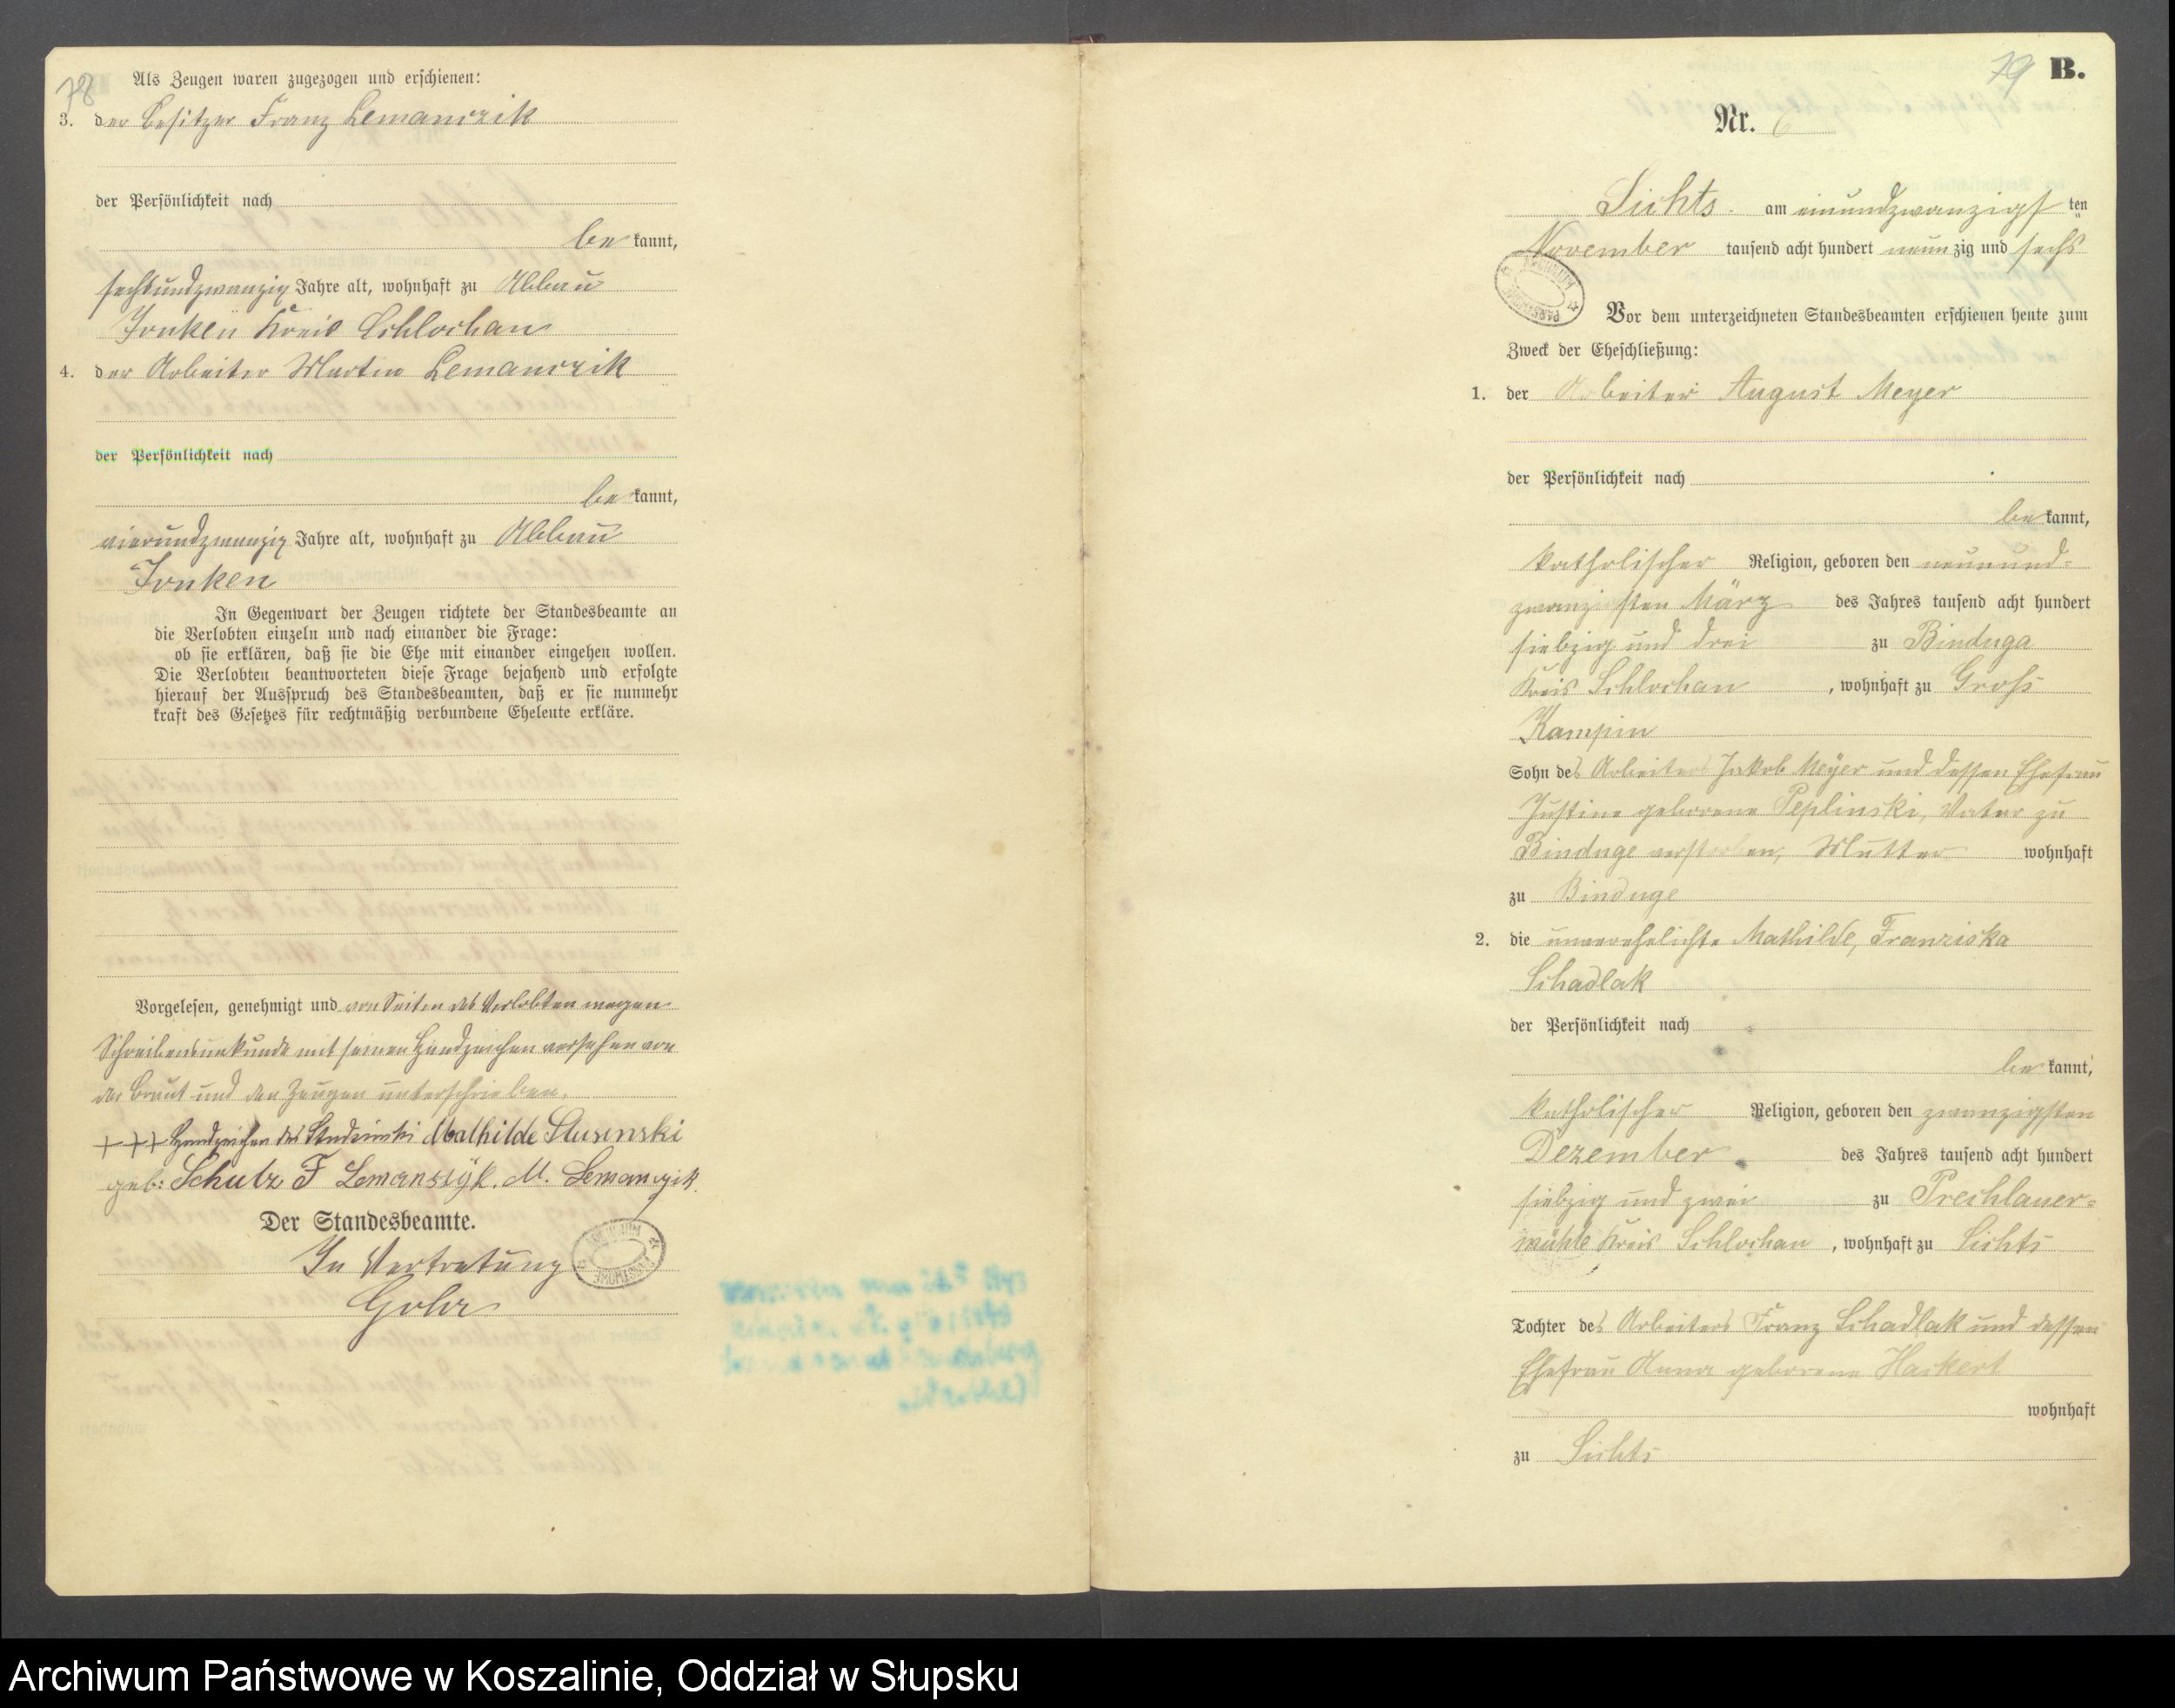 78
Als Zeugen waren zugezogen und erschienen:
3. der Besitzer Franz Lemanczik
der Persönlichkeit nach
be kannt,
sechsundzwanzig Jahre alt, wohnhaft zu Abbau
Jonken Kreis Schlochau
4. der Arbeiter Martin Lemanczik
der Persönlichkeit nach
be kannt,
vierundzwanzig Jahre alt, wohnhaft zu Abbau
Jonken
In Gegenwart der Zeugen richtete der Standesbeamte an
die Verlobten einzeln und nach einander die Frage:
ob sie erklären, daß sie die Ehe mit einander eingehen wollen.
Die Verlobten beantworteten diese Frage bejahend und erfolgte
hierauf der Ausspruch des Standesbeamten, daß er sie nunmehr
kraft des Gesetzes für rechtmäßig verbundene Eheleute erkläre.
Vorgelesen, genehmigt und von Seiten des Verlobten wegen
Schreibensunkunde mit seinen Handzeichen versehen von
der Braut und den Zeugen unterschrieben.
+++ Handzeichen des Mathilde
geb: Schulz F Lemanszyk. M. Lemanczik.
Der Standesbeamte.
In Vertretung
Gohr
79 B.
Nr. 6
Lichts am einundzwanzigsten
November tausend acht hundert neunzig und sechs
Vor dem unterzeichneten Standesbeamten erschienen heute zum
Zweck der Eheschließung:
1. der Arbeiter August Meyer
der Persönlichkeit nach
be kannt,
katholischer Religion, geboren den neunund-
zwanzigsten März des Jahres tausend acht hundert
siebzig und drei zu Binduga
Kreis Schlochau, wohnhaft zu Groß
Kampin
Sohn des Arbeiters Jakob Meyer und dessen Ehefrau
Justine geborene Peplinski, Vater zu
Binduge verstorben, Mutter wohnhaft
zu Binduge
2. die unverehelichte Mathilde, Franziska
Schadlak
der Persönlichkeit nach
be kannt,
katholischer Religion, geboren den zwanzigsten
Dezember des Jahres tausend acht hundert
siebzig und zwei zu Prechlauer-
mühle Kreis Schlochau, wohnhaft zu Lichts
Tochter des Arbeiters Franz Schadlak und dessen
Ehefrau Anna geborene Hackert
wohnhaft
zu Lichts
Archiwum Państwowe w Koszalinie, Oddział w Słupsku